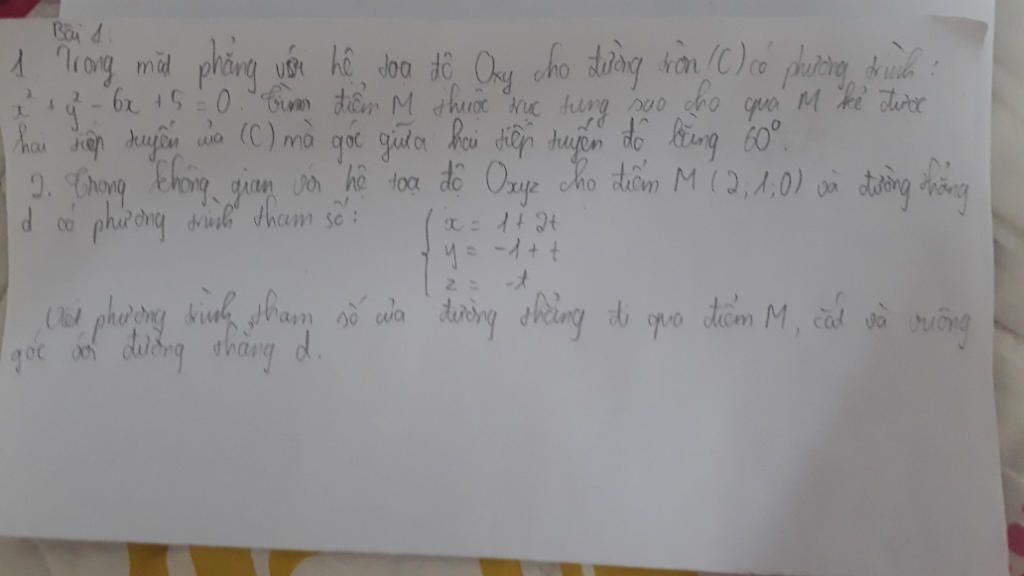 Bài 1:
1. Trong mặt phẳng với hệ toạ độ Oxy cho đường tròn (C) có phương trình:
x² + y² - 6x + 5 = 0. Tìm điểm M thuộc trục tung sao cho qua M kẻ được
hai tiếp tuyến của (C) mà góc giữa hai tiếp tuyến đó bằng 60°.
2. Trong không gian với hệ toạ độ Oxyz cho điểm M (2;1;0) và đường thẳng
d có phương trình tham số:
{ x = 1 + 2t
y = -1 + t
z = -t
Viết phương trình tham số của đường thẳng đi qua điểm M, cắt và vuông
góc với đường thẳng d.